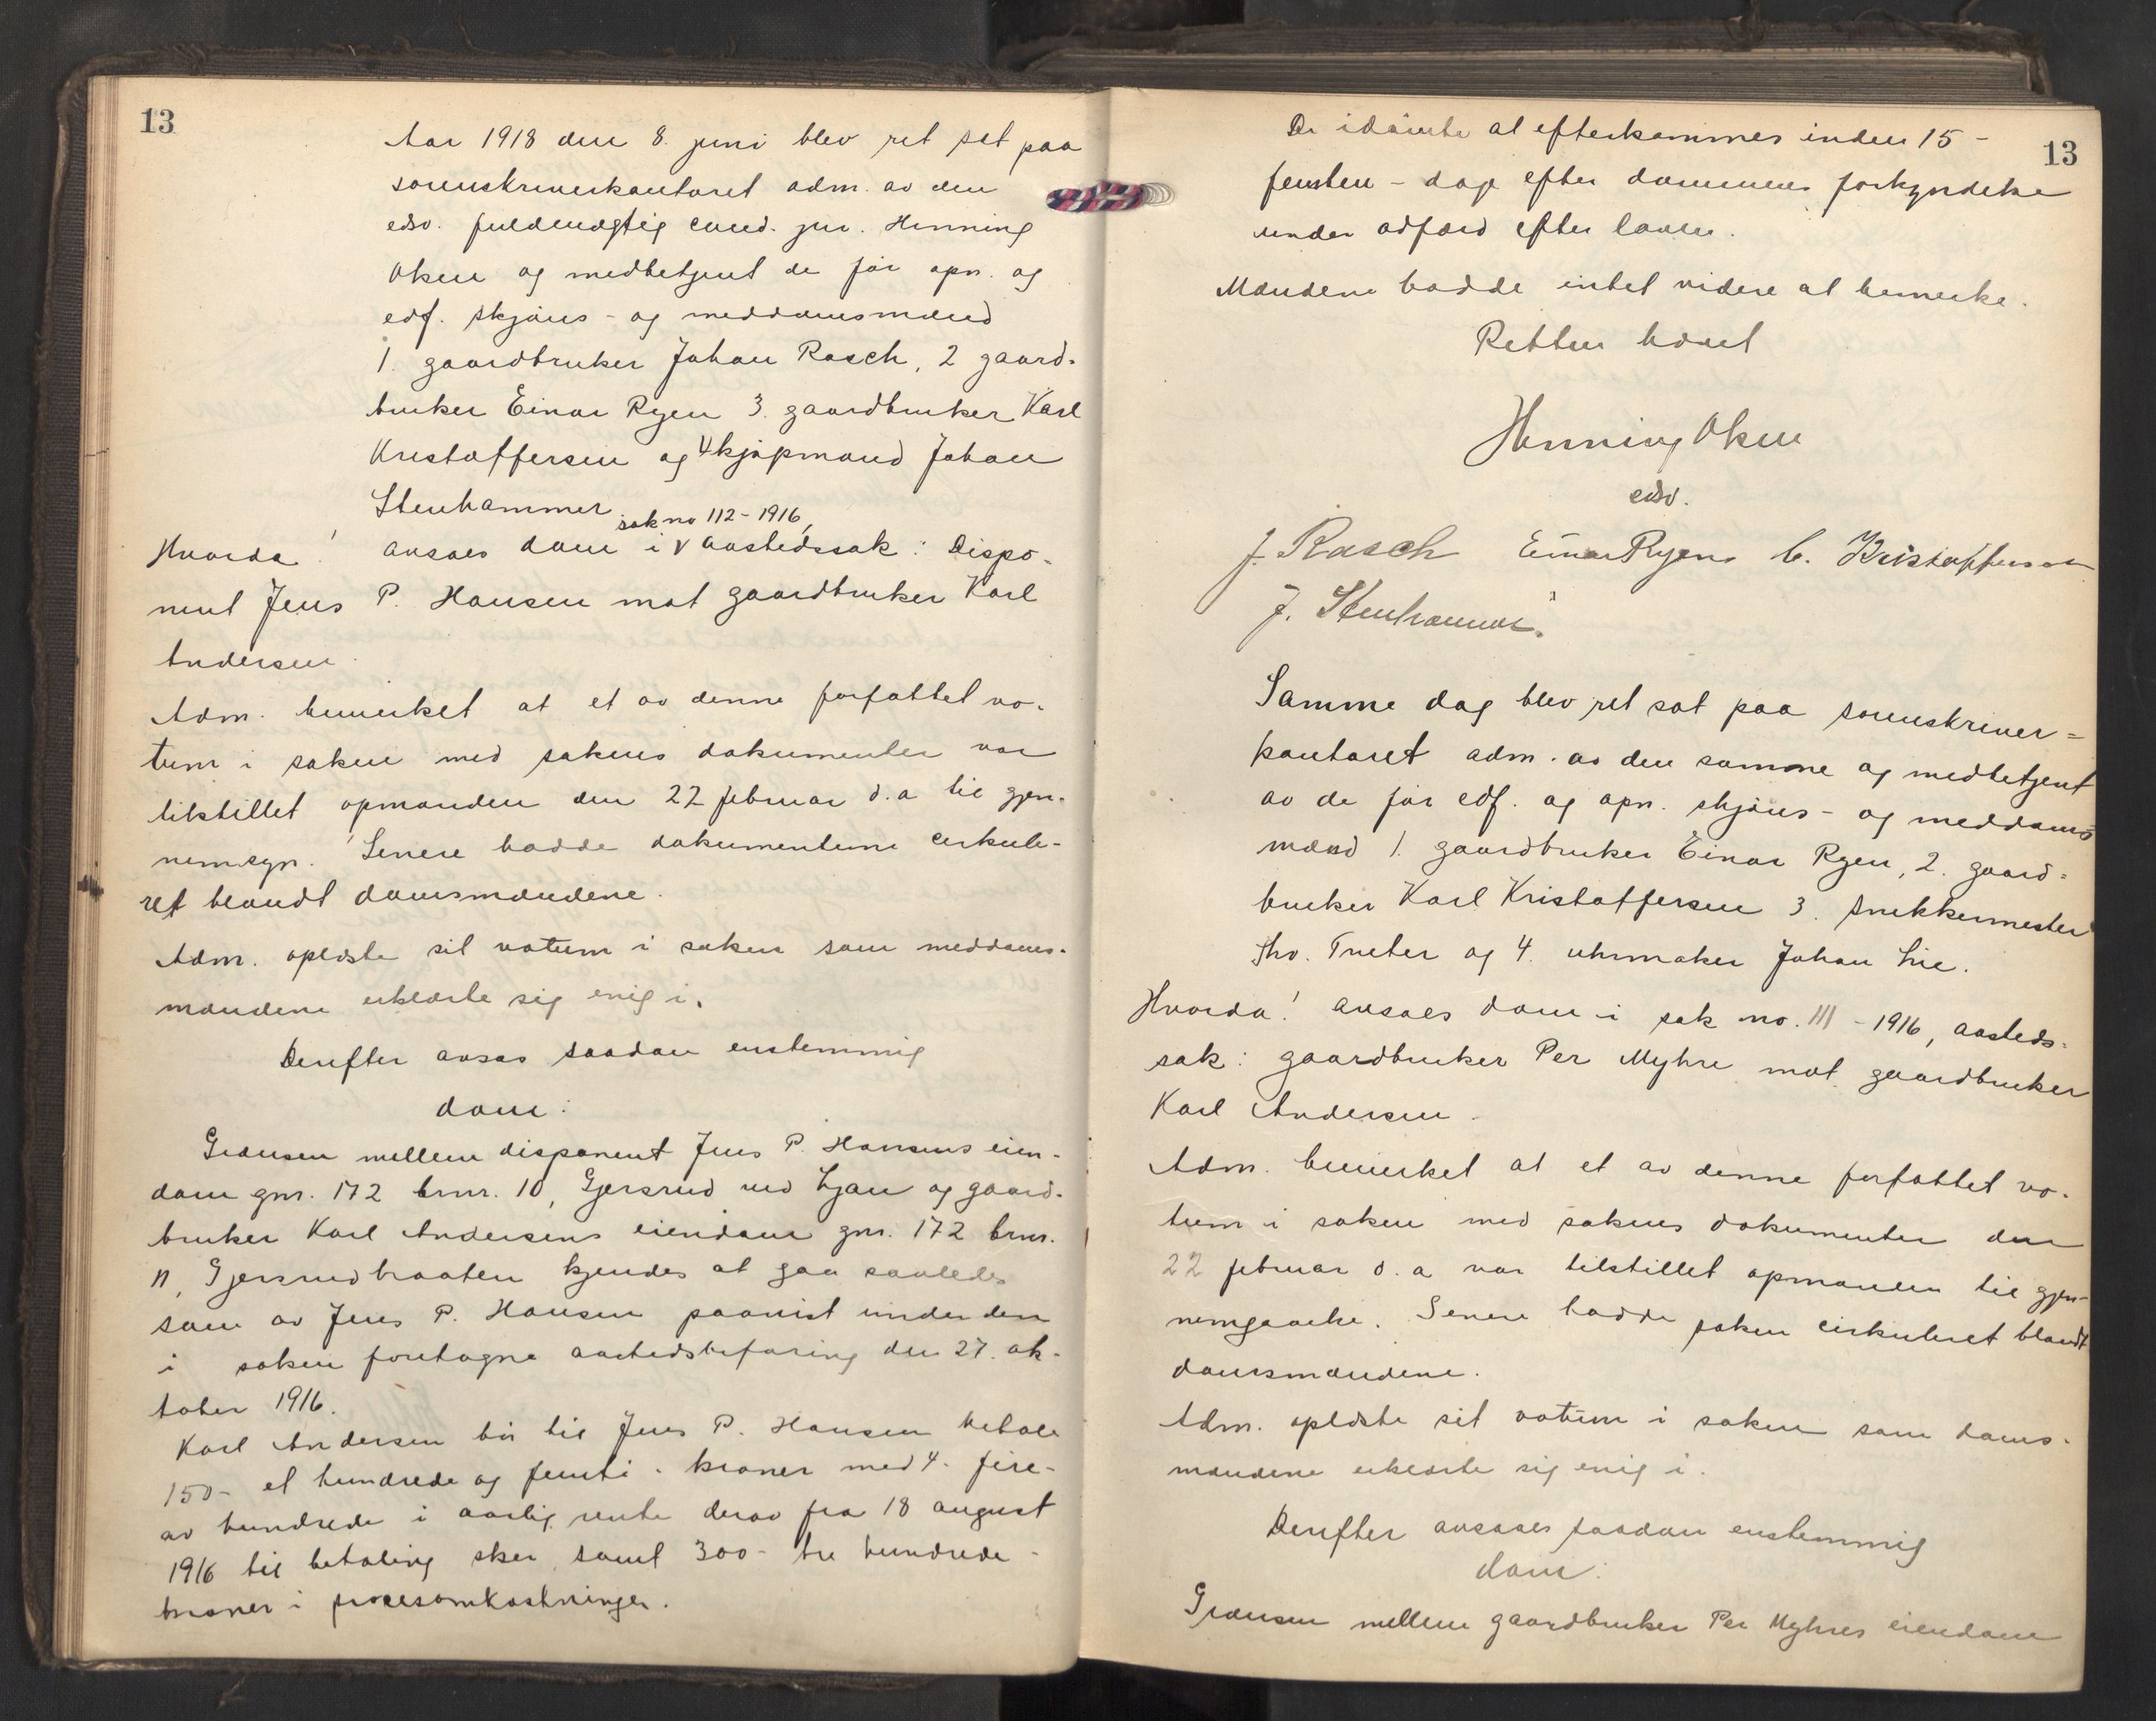 13
Aar 1918 den 8. juni blev ret sat paa
sorenskriverkontoret adm. av den
edsv. fuldmægtig cand. jur. Henning
Oken og medbetjent de før opn. og
edf. skjøns- og meddomsmænd
1. gaardbruker Johan Rasch, 2 gaard-
bruker Einar Ryen 3. gaardbruker Karl
Kristoffersen og 4 kjøpmand Johan
Stenhammer
sak no 112-1916,
Hvorda! avsaes dom i v aastedssak: Dispo-
nent Jens P. Hansen mot gaardbruker Karl
Andersen.
Adm. bemerket at et av denne forfattet vo-
tum i saken med sakens dokumenter var
tilstillet opmanden den 22 februar d.a til gjen-
nemsyn. Senere hadde dokumentene cirkule-
ret blandt domsmændene.
Adm. oplæste sit votum i saken som meddoms-
mændene erklærte sig enig i.
Derefter avsas saadan enstemmig
dom:
Grænsen mellem disponent Jens P. Hansens eien-
dom gnr. 172 brnr. 10, Gjersrud ved Ljan og gaard-
bruker Karl Andersens eiendom gnr. 172 brnr.
11, Gjersrudbraaten kjendes at gaa saaledes
som av Jens P. Hansen paavist under den
i saken foretagne aastedsbefaring den 27. ok-
tober 1916.
Karl Andersen bør til Jens P. Hansen betale
150- et hundrede og femti - kroner med 4- fire-
av hundrede i aarlig rente derav fra 18 august
1916 til betaling sker, samt 300- tre hundrede -
kroner i procesomkostninger.
13
De idømte at efterkommes inden 15 -
femten - dage efter dommens forkyndelse
under adfærd efter loven.
Mændene hadde intet videre at bemerke.
Retten hævet
Henning Oken
edsv.
J. Rasch Einar Ryen C. Kristoffersen
J. Stenhammer.
Samme dag blev ret sat paa sorenskriver=
kontoret adm. av den samme og medbetjent
av de før edf. og opn. skjøns- og meddoms-
mænd 1. gaardbruker Einar Ryen, 2. gaard=
bruker Karl Kristoffersen 3. snekkermester
Thv. Treter og 4. uhrmaker Johan Lie.
Hvorda! avsaes dom i sak no. 111-1916, aasteds-
sak: gaardbruker Per Myhre mot gaardbruker
Karl Andersen.
Adm. bemerket at et av denne forfattet vo-
tum i saken med sakens dokumenter den
22 februar d.a var tilstillet opmanden til gjen-
nemgaaelse. Senere hadde saken cirkuleret blandt
domsmændene.
Adm. oplæste sit votum i saken som doms-
mændene erklærte sig enig i.
Derefter avsaaes saadan enstemmig
dom:
Grænsen mellem gaardbruker Per Myhres eiendom